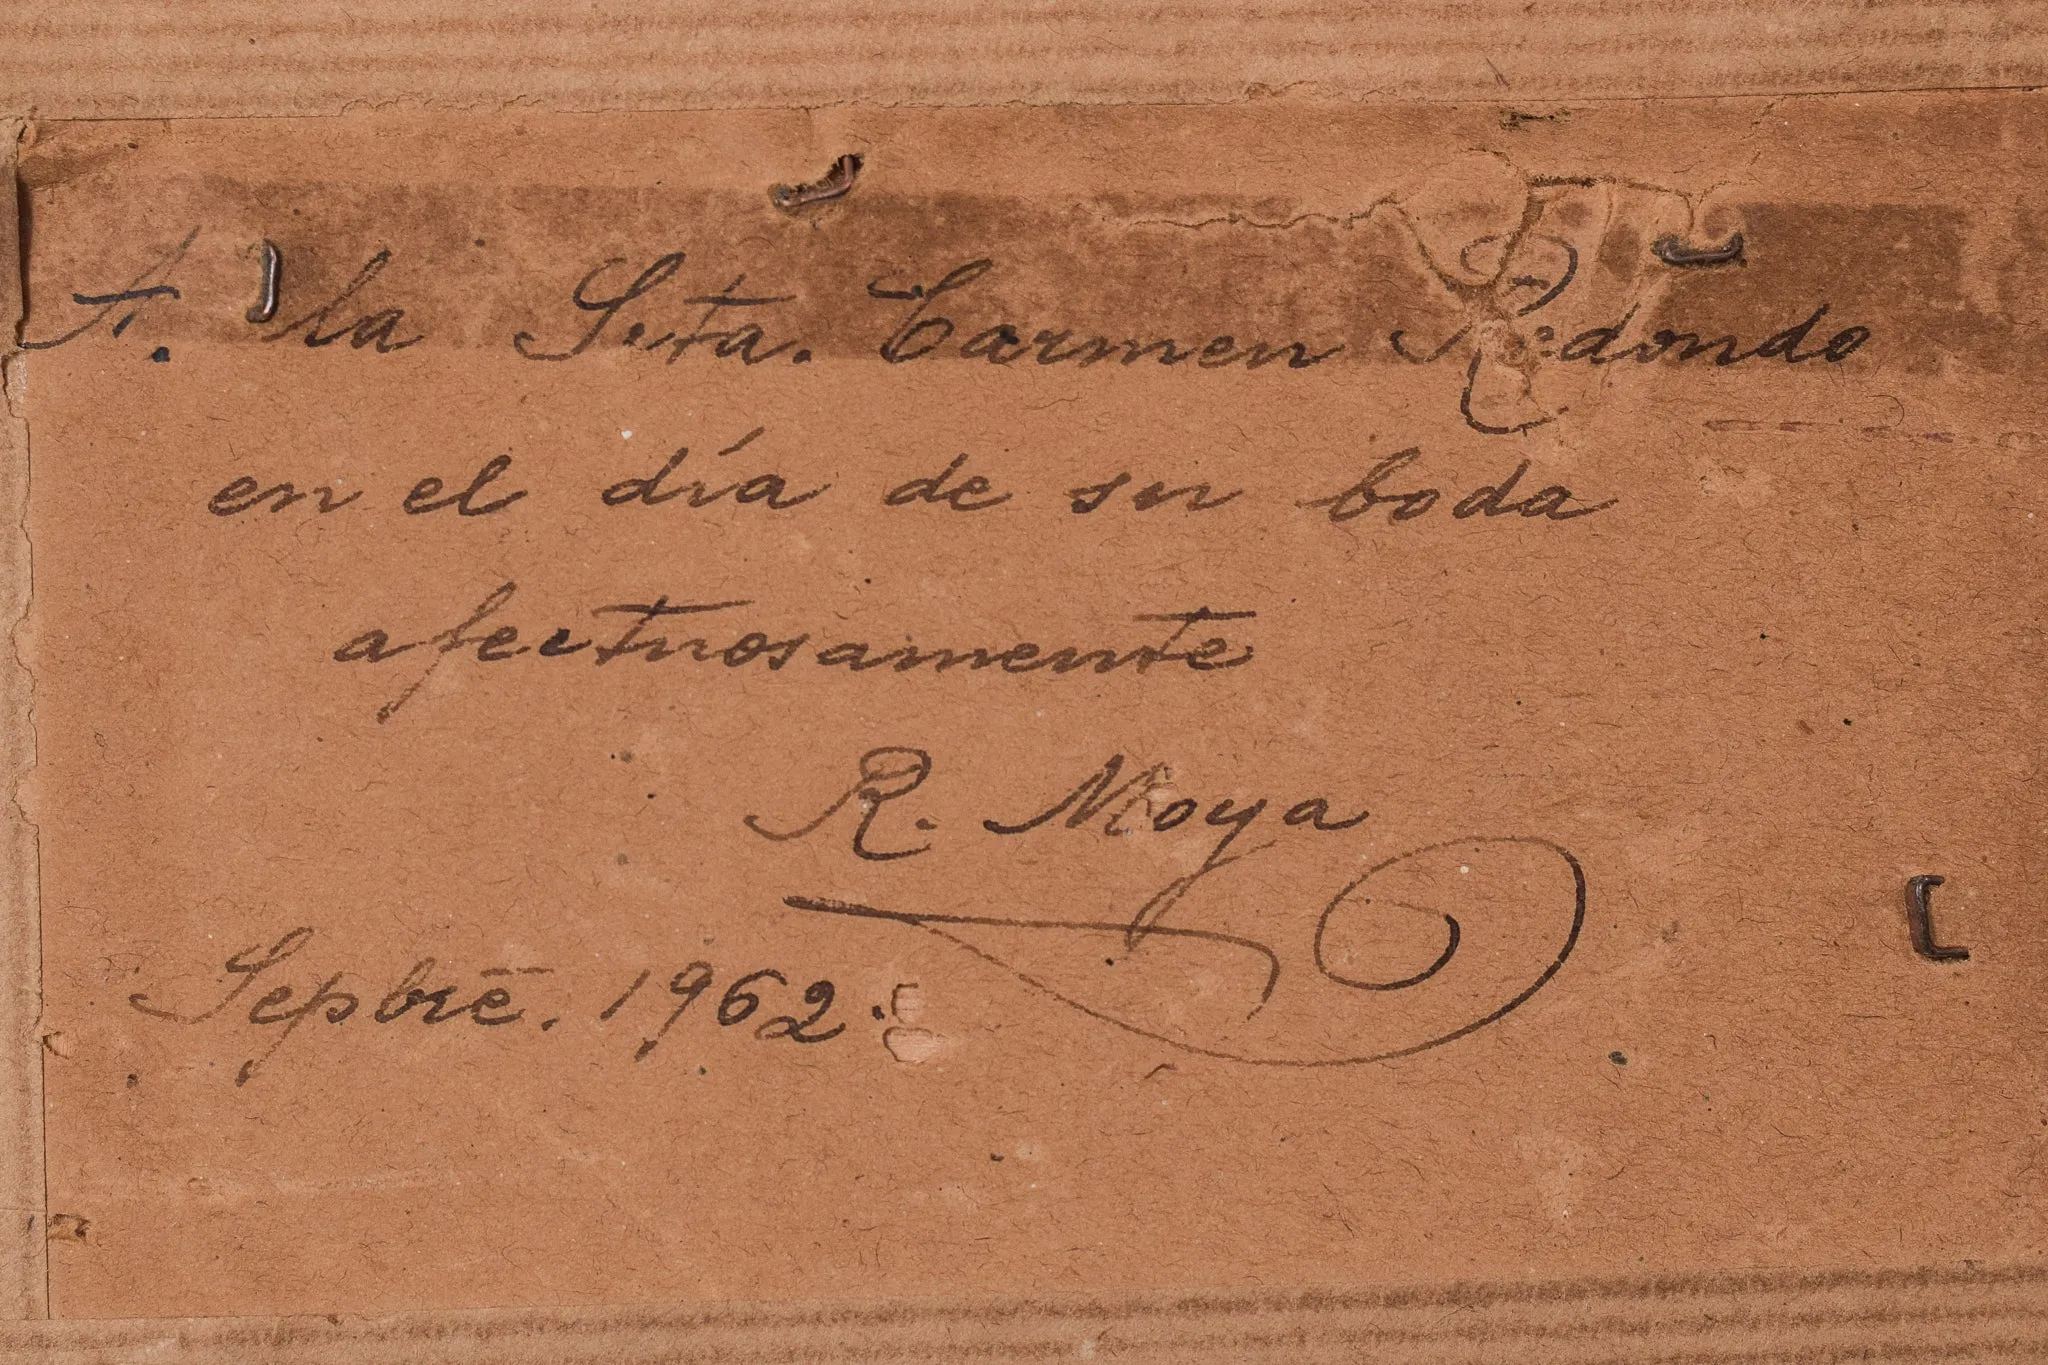 A. la Srta. Carmen Redondo
en el día de su boda
afectuosamente
R. Moya
Sepbre. 1962.